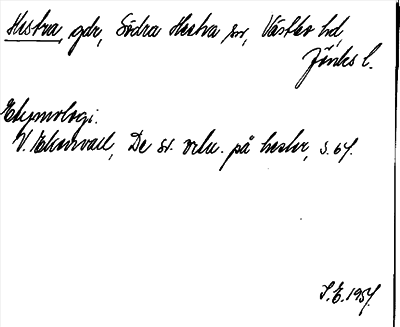 Hestra, gdr, Södra Hestra sn, Västbo hd,
Jönk. l.
Etymologi:
V. Ekenvall, De sv. ortn. på hestr, s. 64.
S.E. 1954.